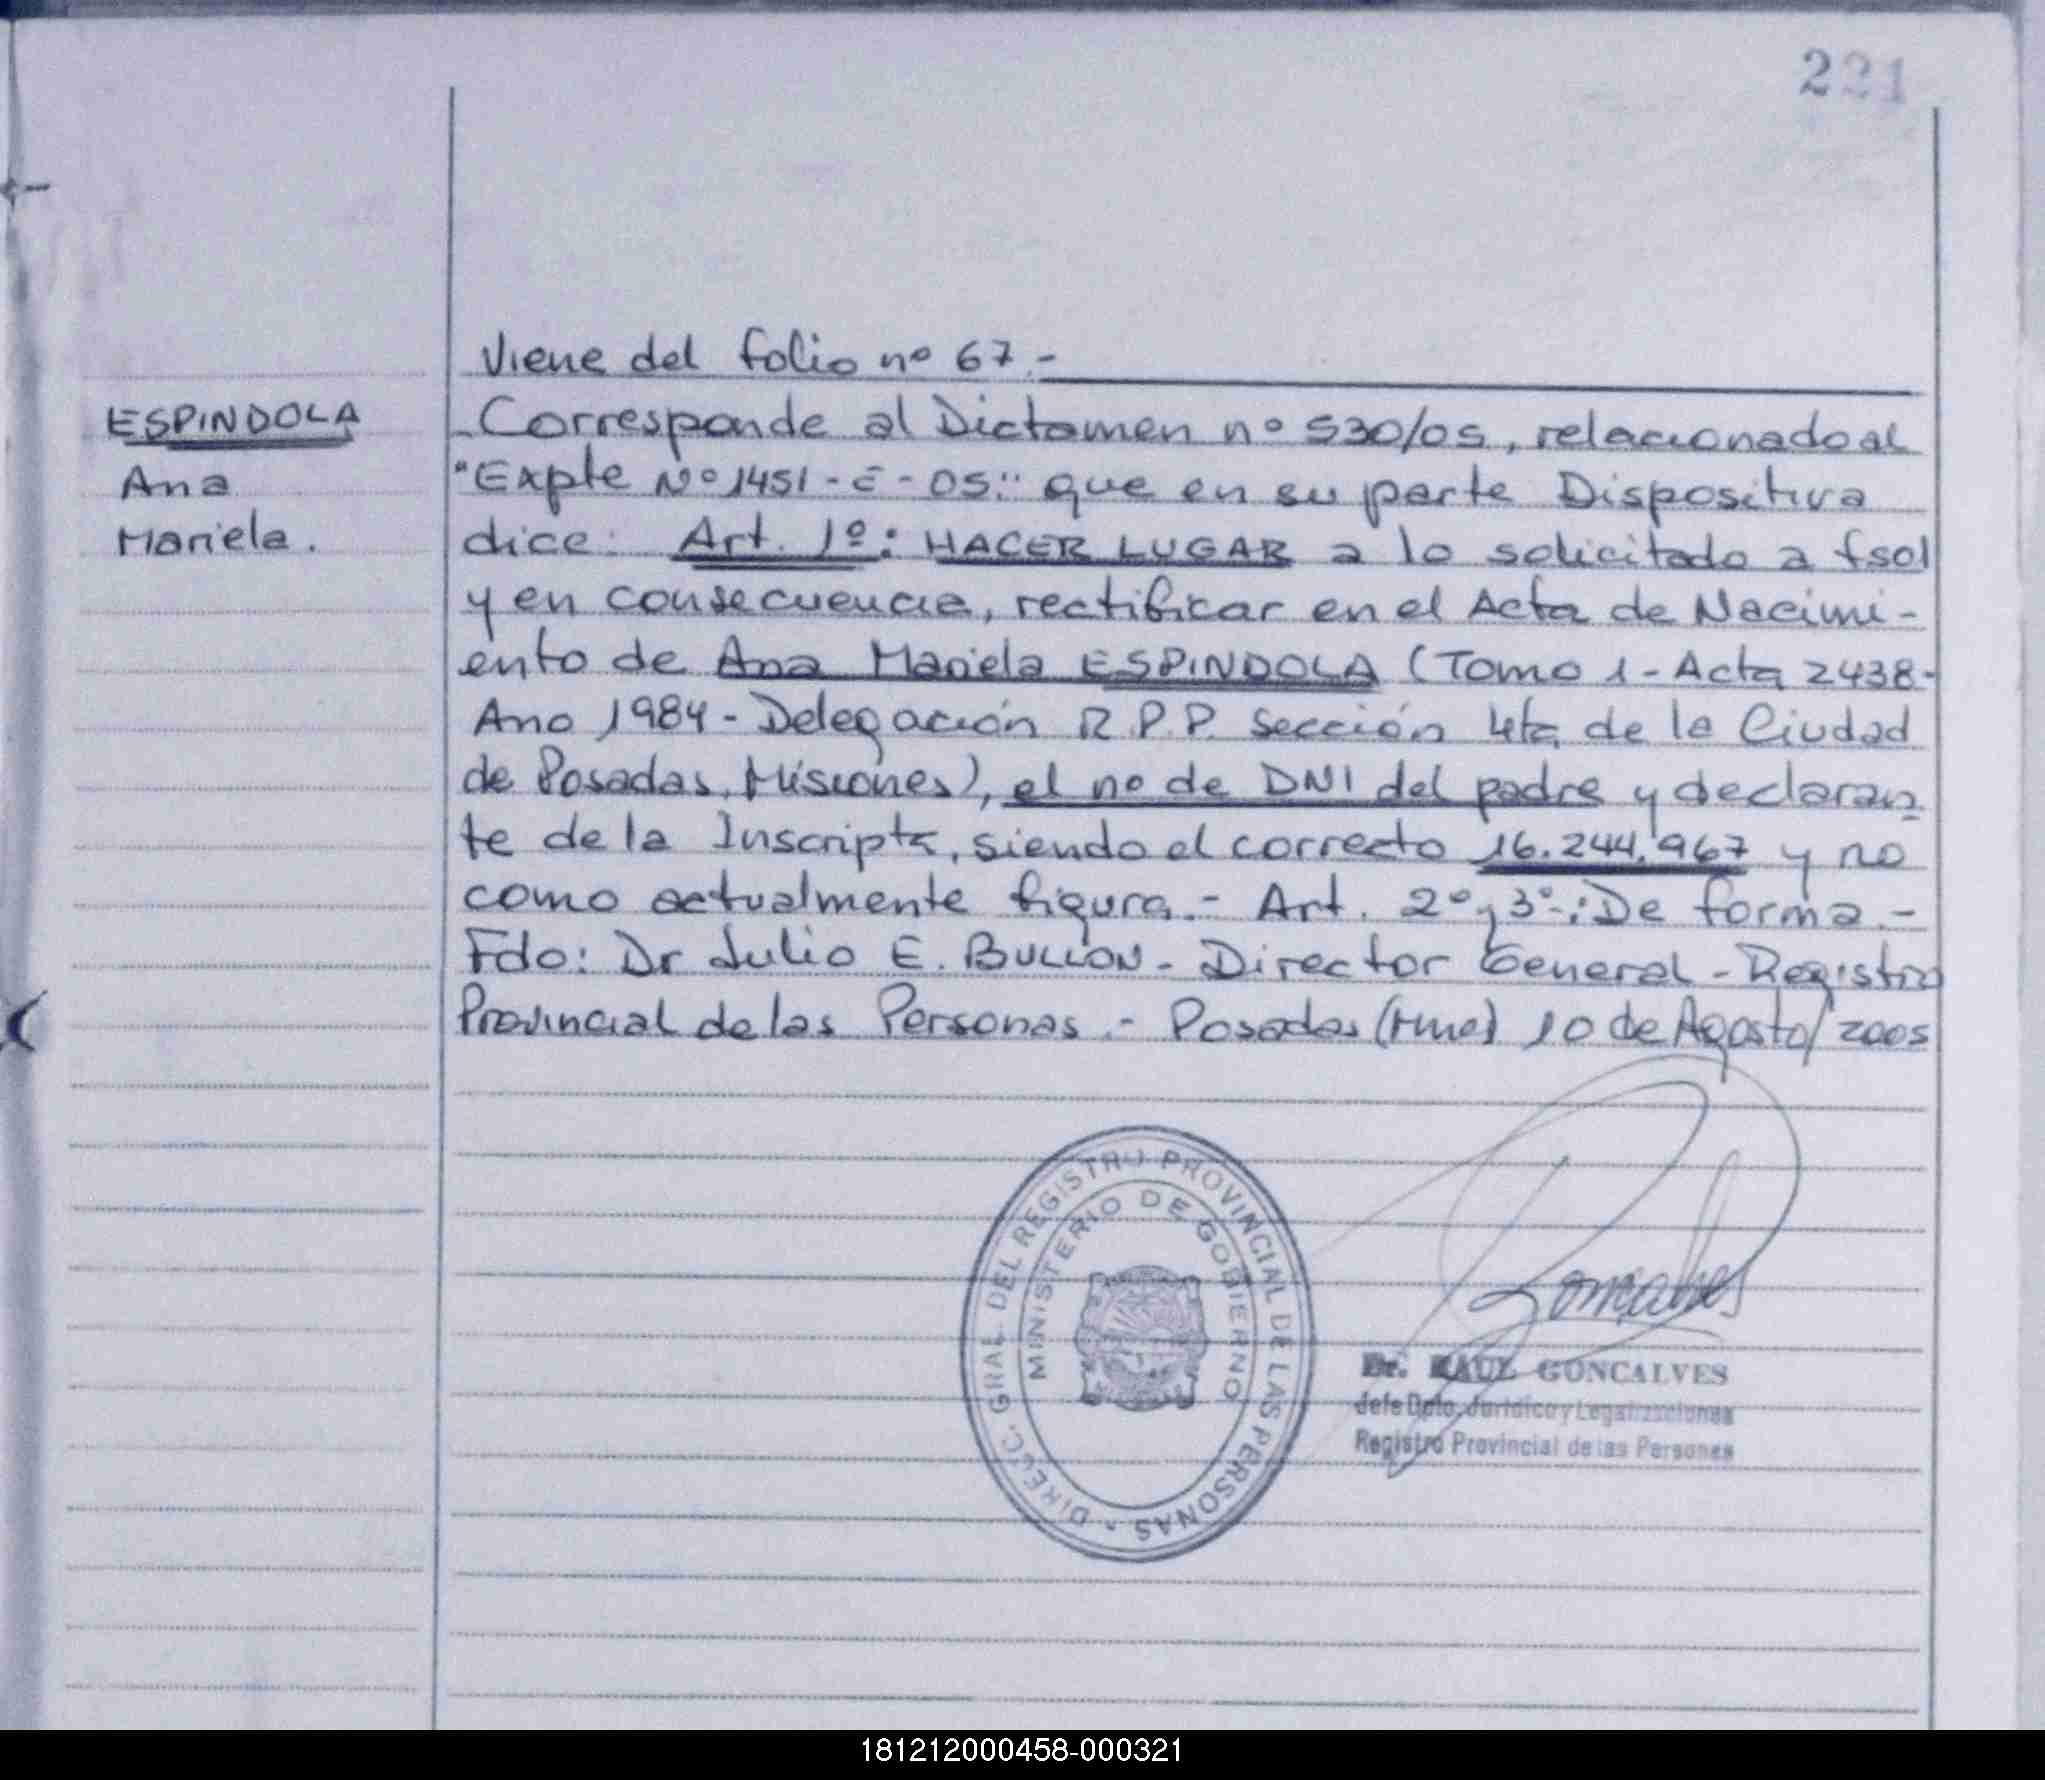 221
Viene del folio nº 67.-
ESPINDOLA
Ana
Mariela.
Corresponde al Dictamen nº 530/05, relacionado al
"Expte Nº 1451-E-05:" que en su parte Dispositiva
dice: Art. 1º: HACER LUGAR a lo solicitado a fs01
y en consecuencia, rectificar en el Acta de Nacimi-
ento de Ana Mariela ESPINDOLA (Tomo 1-Acta 2438-
Ano 1984-Delegación R.P.P. Sección 4ta de la Ciudad
de Posadas, Misiones), el no de DNI del padre y declaran
te de la Inscripta, siendo el correcto 16.244.967 y no
como actualmente figura.- Art. 2º y 3º-: De forma.-
Fdo: Dr Julio E. BULLON- Director General-Registro
Provincial de las Personas.- Posadas (Mnes) 10 de Agosto/2005
DIRECC. GRAL. DEL REGISTRO PROVINCIAL DE LAS PERSONAS -
MINISTERIO DE GOBIERNO
Goncalves
Dr. RAUL GONCALVES
Jefe Dpto. Jurídico y Legalizaciones
Registro Provincial de las Personas
181212000458-000321